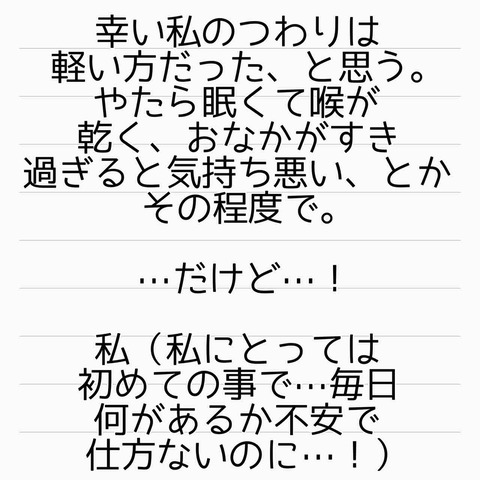 幸い私のつわりは
軽い方だった、と思う。
やたら眠くて喉が
乾く、おなかがすき
過ぎると気持ち悪い、とか
その程度で。
…だけど…！
私（私にとっては
初めての事で…毎日
何があるか不安で
仕方ないのに…！）